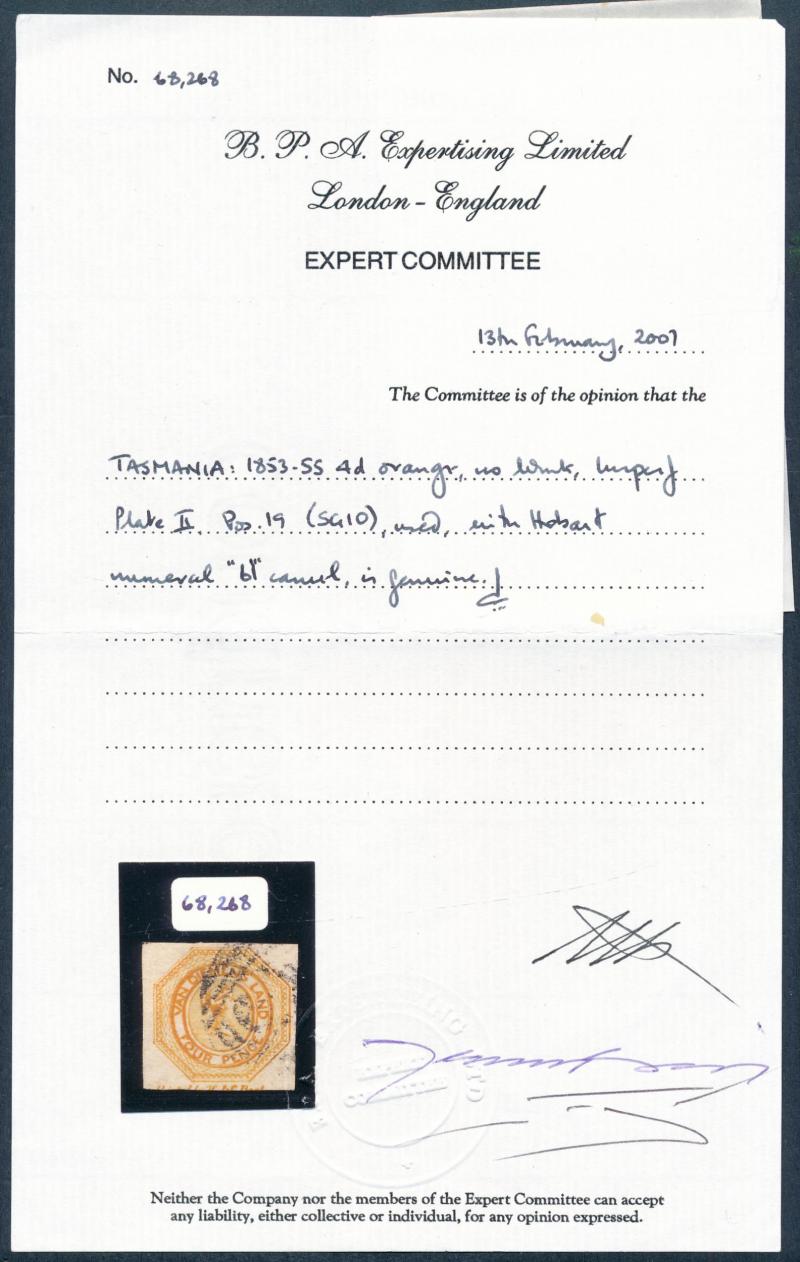 No. 68,268
B. P. A. Expertising Limited
London - England
EXPERT COMMITTEE
13th February, 2007
The Committee is of the opinion that the
TASMANIA: 1853-55 4d orange, no Wmk, Imperf
Plate II. Pos. 19 (SG10), used, with Hobart
numeral "61" cancel, is genuine.
68,268
VAN DIEMENS LAND
FOUR PENCE
Neither the Company nor the members of the Expert Committee can accept
any liability, either collective or individual, for any opinion expressed.